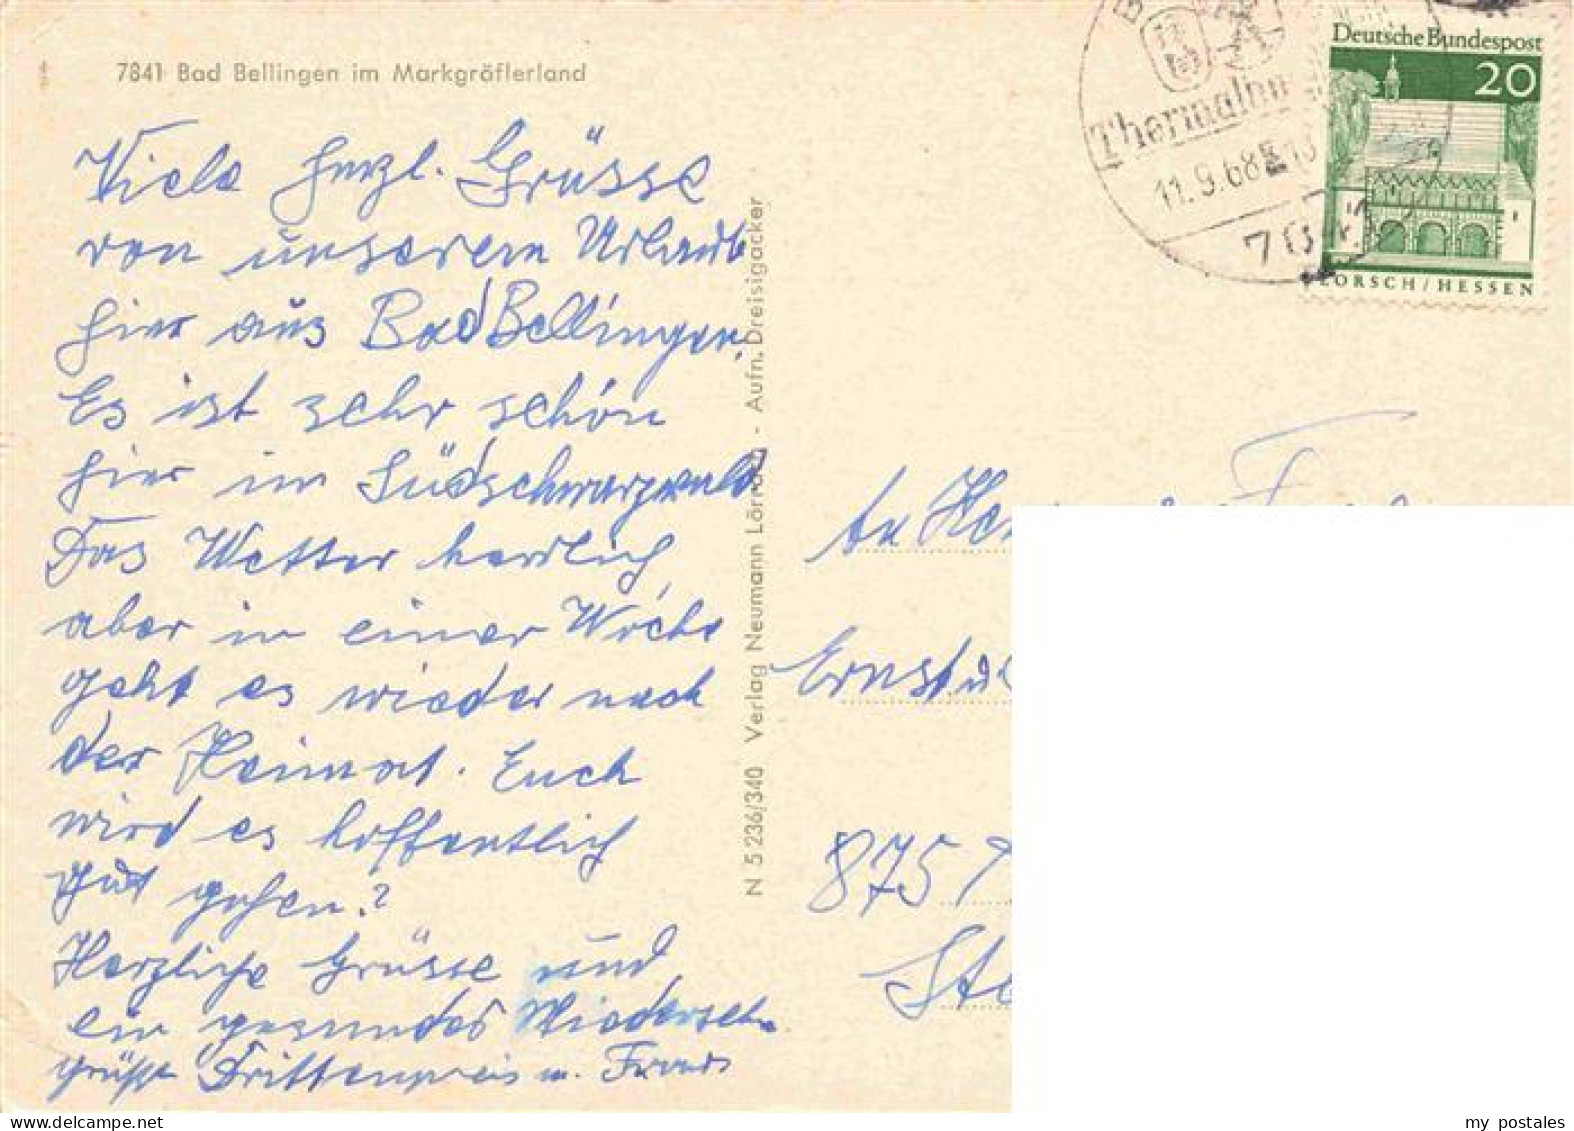 7841 Bad Bellingen im Markgräflerland
Viele herzl. Grüsse
von unserem Urlaub
hier aus Bad Bellingen.
Es ist sehr schön
hier im Südschwarzwald
Das Wetter herrlich,
aber in einer Woche
geht es wieder nach
der Heimat. Euch
wird es hoffentlich
gut gehen?
Herzliche Grüsse und
ein gesundes Wiedersehn
grüßt
N 5 236/340 Verlag Neumann Lörrach - Aufn. Dreisigacker
Thermal
11.9.68
Deutsche Bundespost
20
LORSCH/HESSEN
An
Ernst
875
my postales